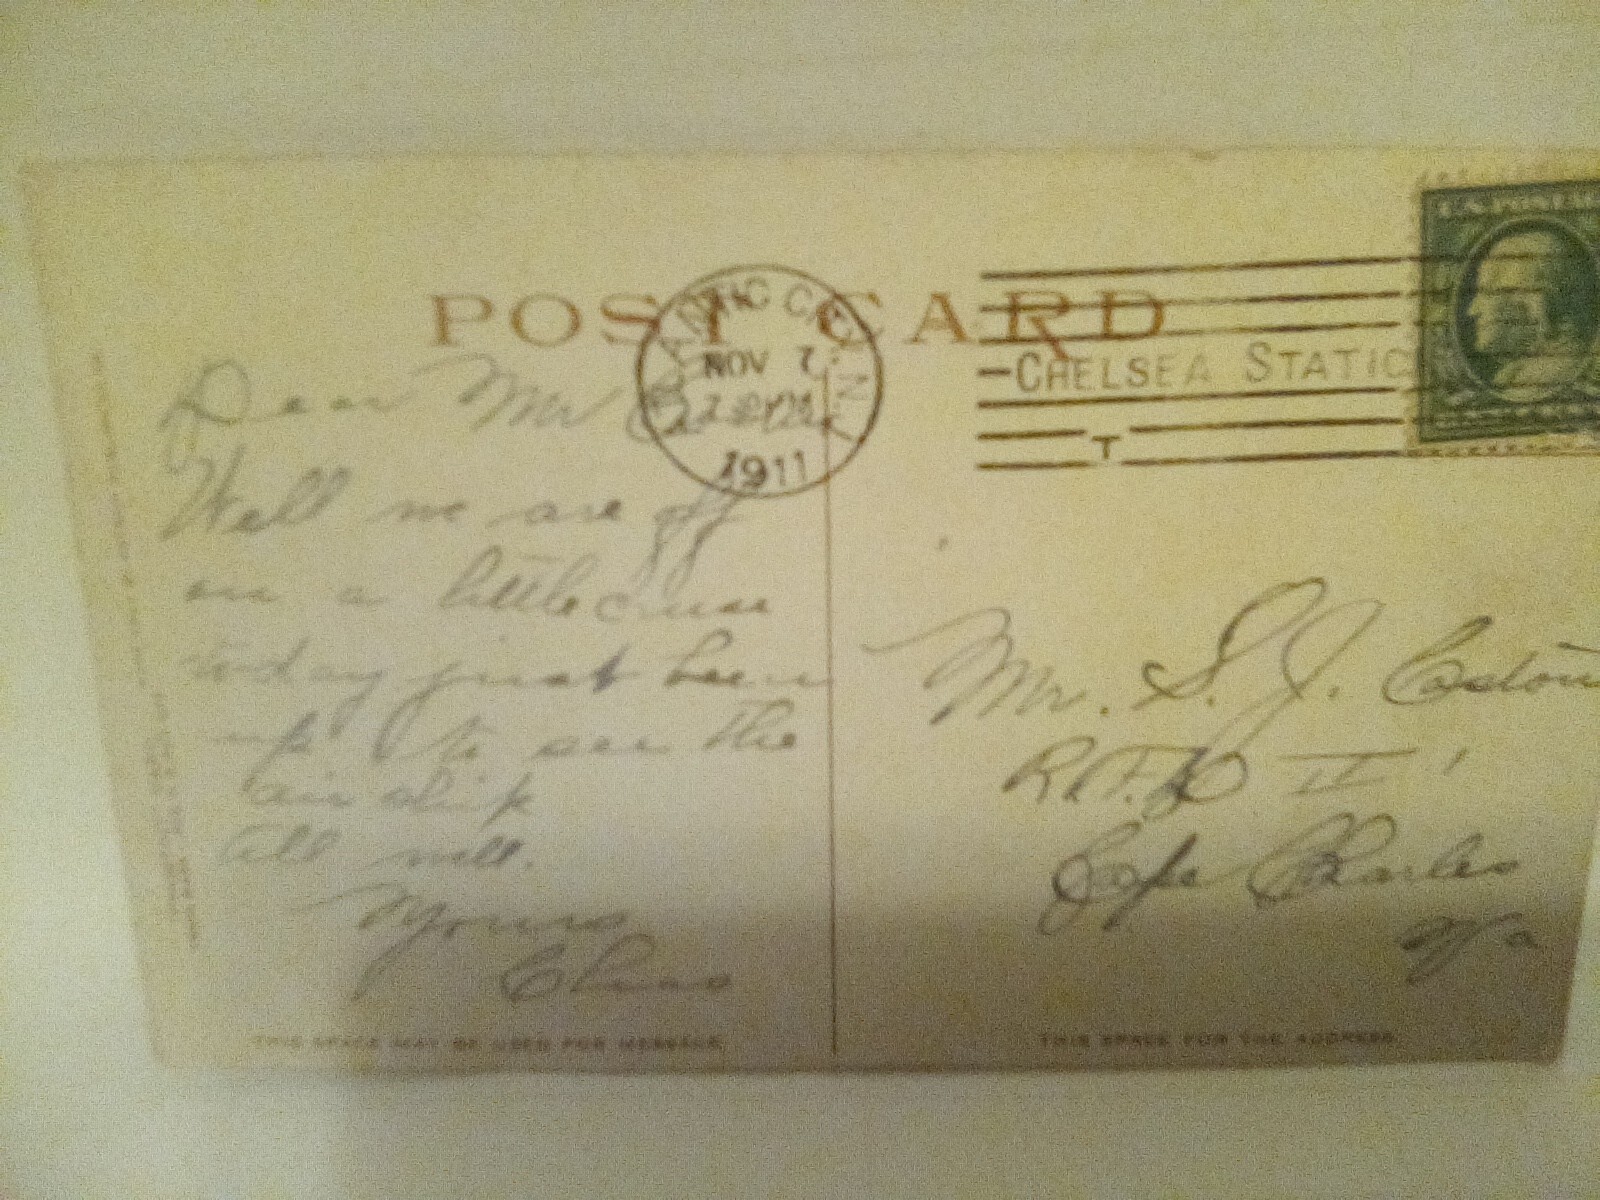 POST CARD
ATLANTIC CITY, N.J.
NOV 7
1911
CHELSEA STATIO
T
U.S. POSTAGE
Dear Mr
Well we are off
on a little cruse
today just been
up to see the
air ship
All well.
Yours
Mr. S. J.
R.F.D II
Cape Charles
Va
THIS SPACE MAY BE USED FOR MESSAGE
THIS SPACE FOR THE ADDRESS